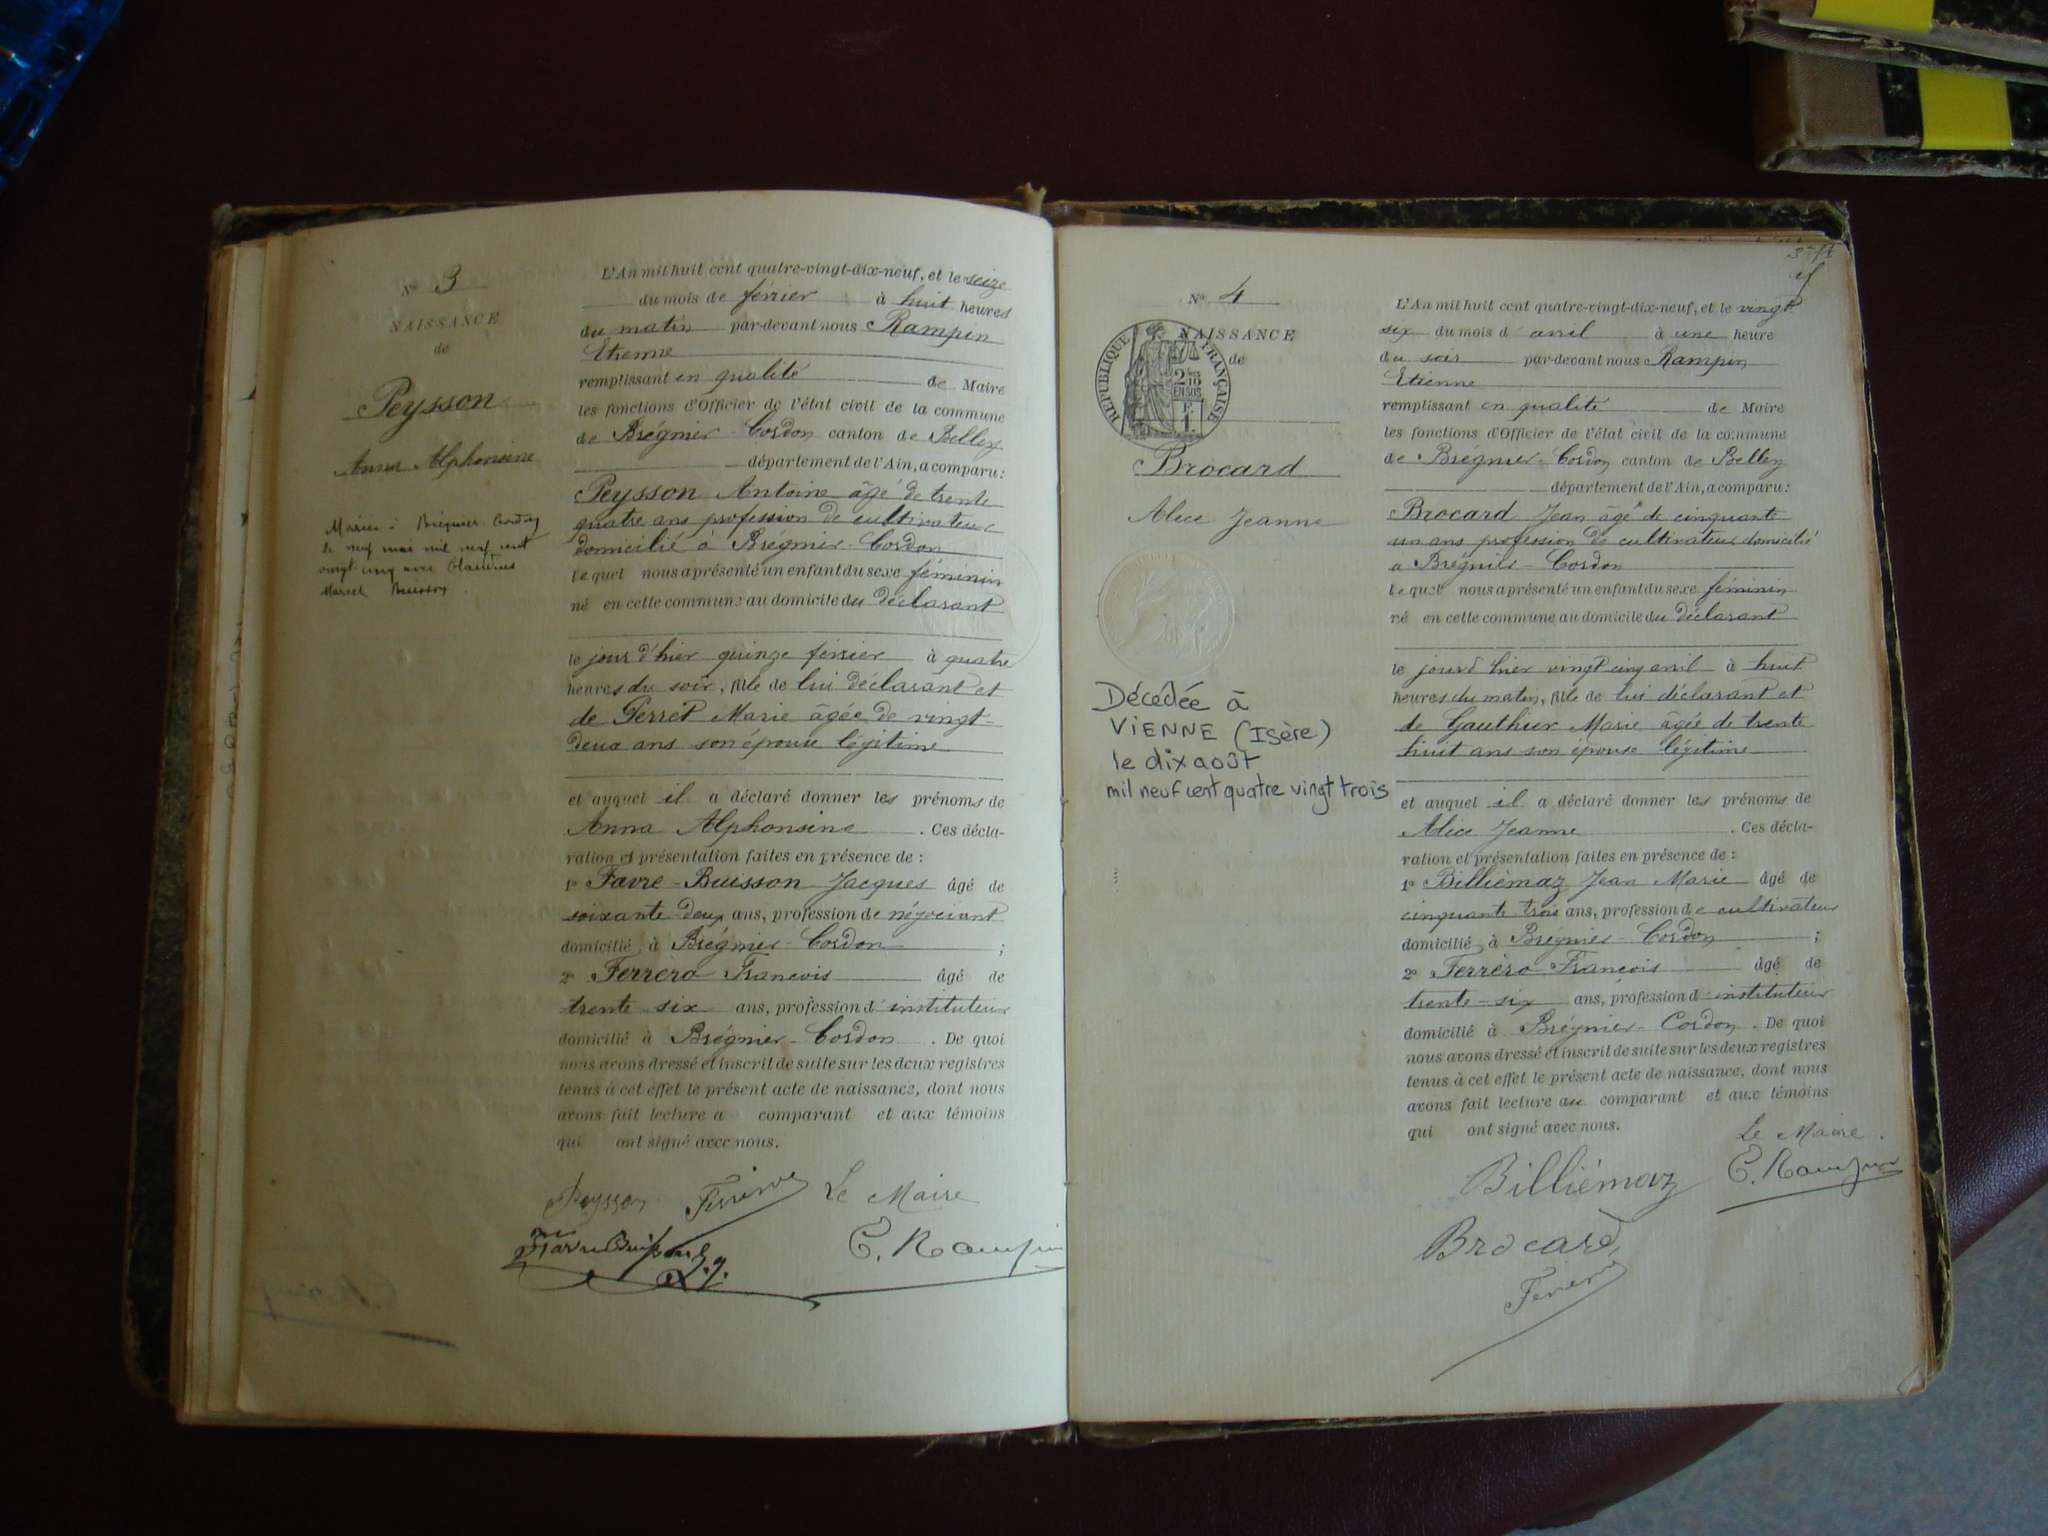 Nº 3
NAISSANCE
de
Peysson
Anna Alphonsine
Mariée à Brégnier-Cordon
le neuf mai mil neuf cent
vingt cinq avec Claudius
Marcel Buisson.
L'An mil huit cent quatre-vingt-dix-neuf, et le seize
du mois de février à huit heures
du matin par-devant nous Rampin
Etienne
remplissant en qualité de Maire
les fonctions d'Officier de l'état civil de la commune
de Brégnier-Cordon canton de Belley
département de l'Ain, a comparu:
Peysson Antoine âgé de trente
quatre ans profession de cultivateur
domicilié à Brégnier-Cordon
lequel nous a présenté un enfant du sexe féminin
né en cette commune au domicile du déclarant
le jour d'hier quinze février à quatre
heures du soir, fille de lui déclarant et
de Perret Marie âgée de vingt-
deux ans son épouse légitime
et auquel il a déclaré donner les prénoms de
Anna Alphonsine. Ces décla-
ration et présentation faites en présence de:
1º Favre-Buisson Jacques âgé de
soixante-deux ans, profession de négociant
domicilié à Brégnier-Cordon;
2º Ferrero Francois âgé de
trente-six ans, profession d'instituteur
domicilié à Brégnier-Cordon. De quoi
nous avons dressé et inscrit de suite sur les deux registres
tenus à cet effet le présent acte de naissance, dont nous
avons fait lecture a comparant et aux témoins
qui ont signé avec nous.
Peysson Ferrero Le Maire
Favre Buisson E. Rampin
Nº 4
NAISSANCE
de
REPUBLIQUE FRANÇAISE
2/10
EN SUS
F
1
Brocard
Alice Jeanne
Décédée à
VIENNE (Isère)
le dix août
mil neuf cent quatre vingt trois
L'An mil huit cent quatre-vingt-dix-neuf, et le vingt
six du mois d'avril à une heure
du soir par-devant nous Rampin
Etienne
remplissant en qualité de Maire
les fonctions d'Officier de l'état civil de la commune
de Brégnier-Cordon canton de Belley
département de l'Ain, a comparu:
Brocard Jean âgé de cinquante
un ans profession de cultivateur domicilié
a Brégnier-Cordon
lequel nous a présenté un enfant du sexe féminin
né en cette commune au domicile du déclarant
le jour d'hier vingt cinq avril à huit
heures du matin, fille de lui déclarant et
de Gauthier Marie âgée de trente
huit ans son épouse légitime
et auquel il a déclaré donner les prénoms de
Alice Jeanne. Ces décla-
ration et présentation faites en présence de:
1º Billiémaz Jean Marie âgé de
cinquante trois ans, profession de cultivateur
domicilié à Brégnier-Cordon;
2º Ferrèro Francois âgé de
trente-six ans, profession d'instituteur
domicilié à Brégnier-Cordon. De quoi
nous avons dressé et inscrit de suite sur les deux registres
tenus à cet effet le présent acte de naissance, dont nous
avons fait lecture au comparant et aux témoins
qui ont signé avec nous.
Le Maire.
Billiémaz E. Rampin
Brocard
Ferrero